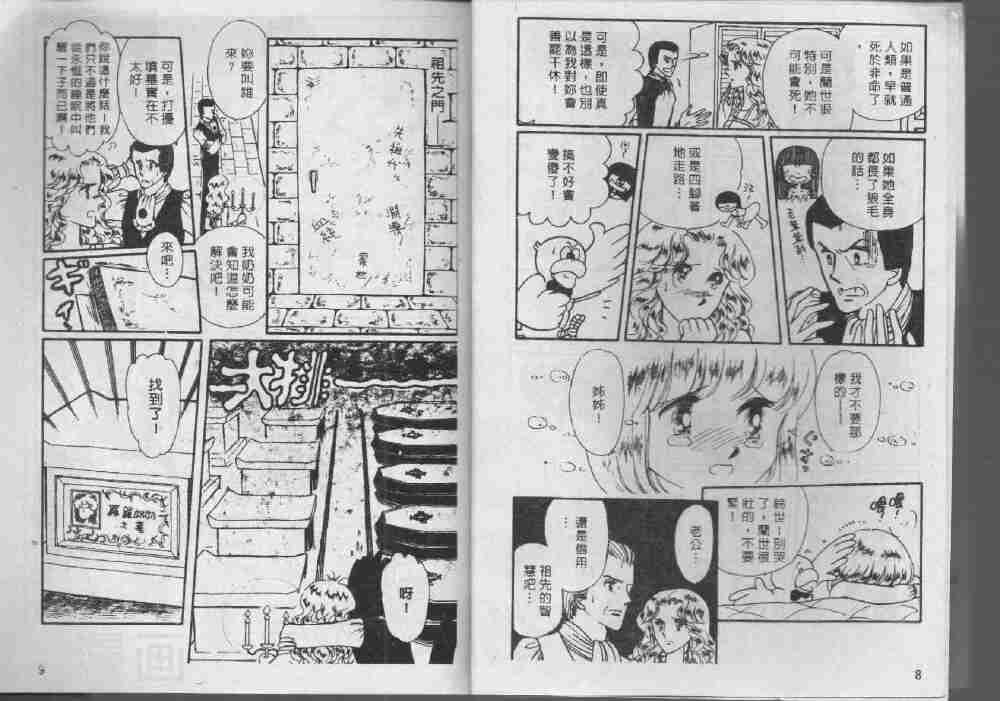 如果是普通
人類，早就
死於非命了
，
可是蘭世很
特別，她不
可能會死！
可是，即使真
是這樣，也別
以為我對妳會
善罷干休！
如果她全身
都長了狼毛
的話…
或是四腳著
地走路…
搞不好會
變傻了！
我才不要那
樣的！
姊姊！
鈴世！別哭
了，蘭世很
壯的，不要
緊！
嗚嗚
老公…
還是借用
…
祖先的智
慧吧…
8
祖先之門
妳要叫誰
來？
可是，打擾
墳墓實在不
太好！
你說這什麼話！我
們只不過是將他們
從永恆的睡眠中叫
醒一下子而已啊！
我奶奶可能
會知道怎麼
解決吧！
來吧…
ギ
找到了！
呀！
9